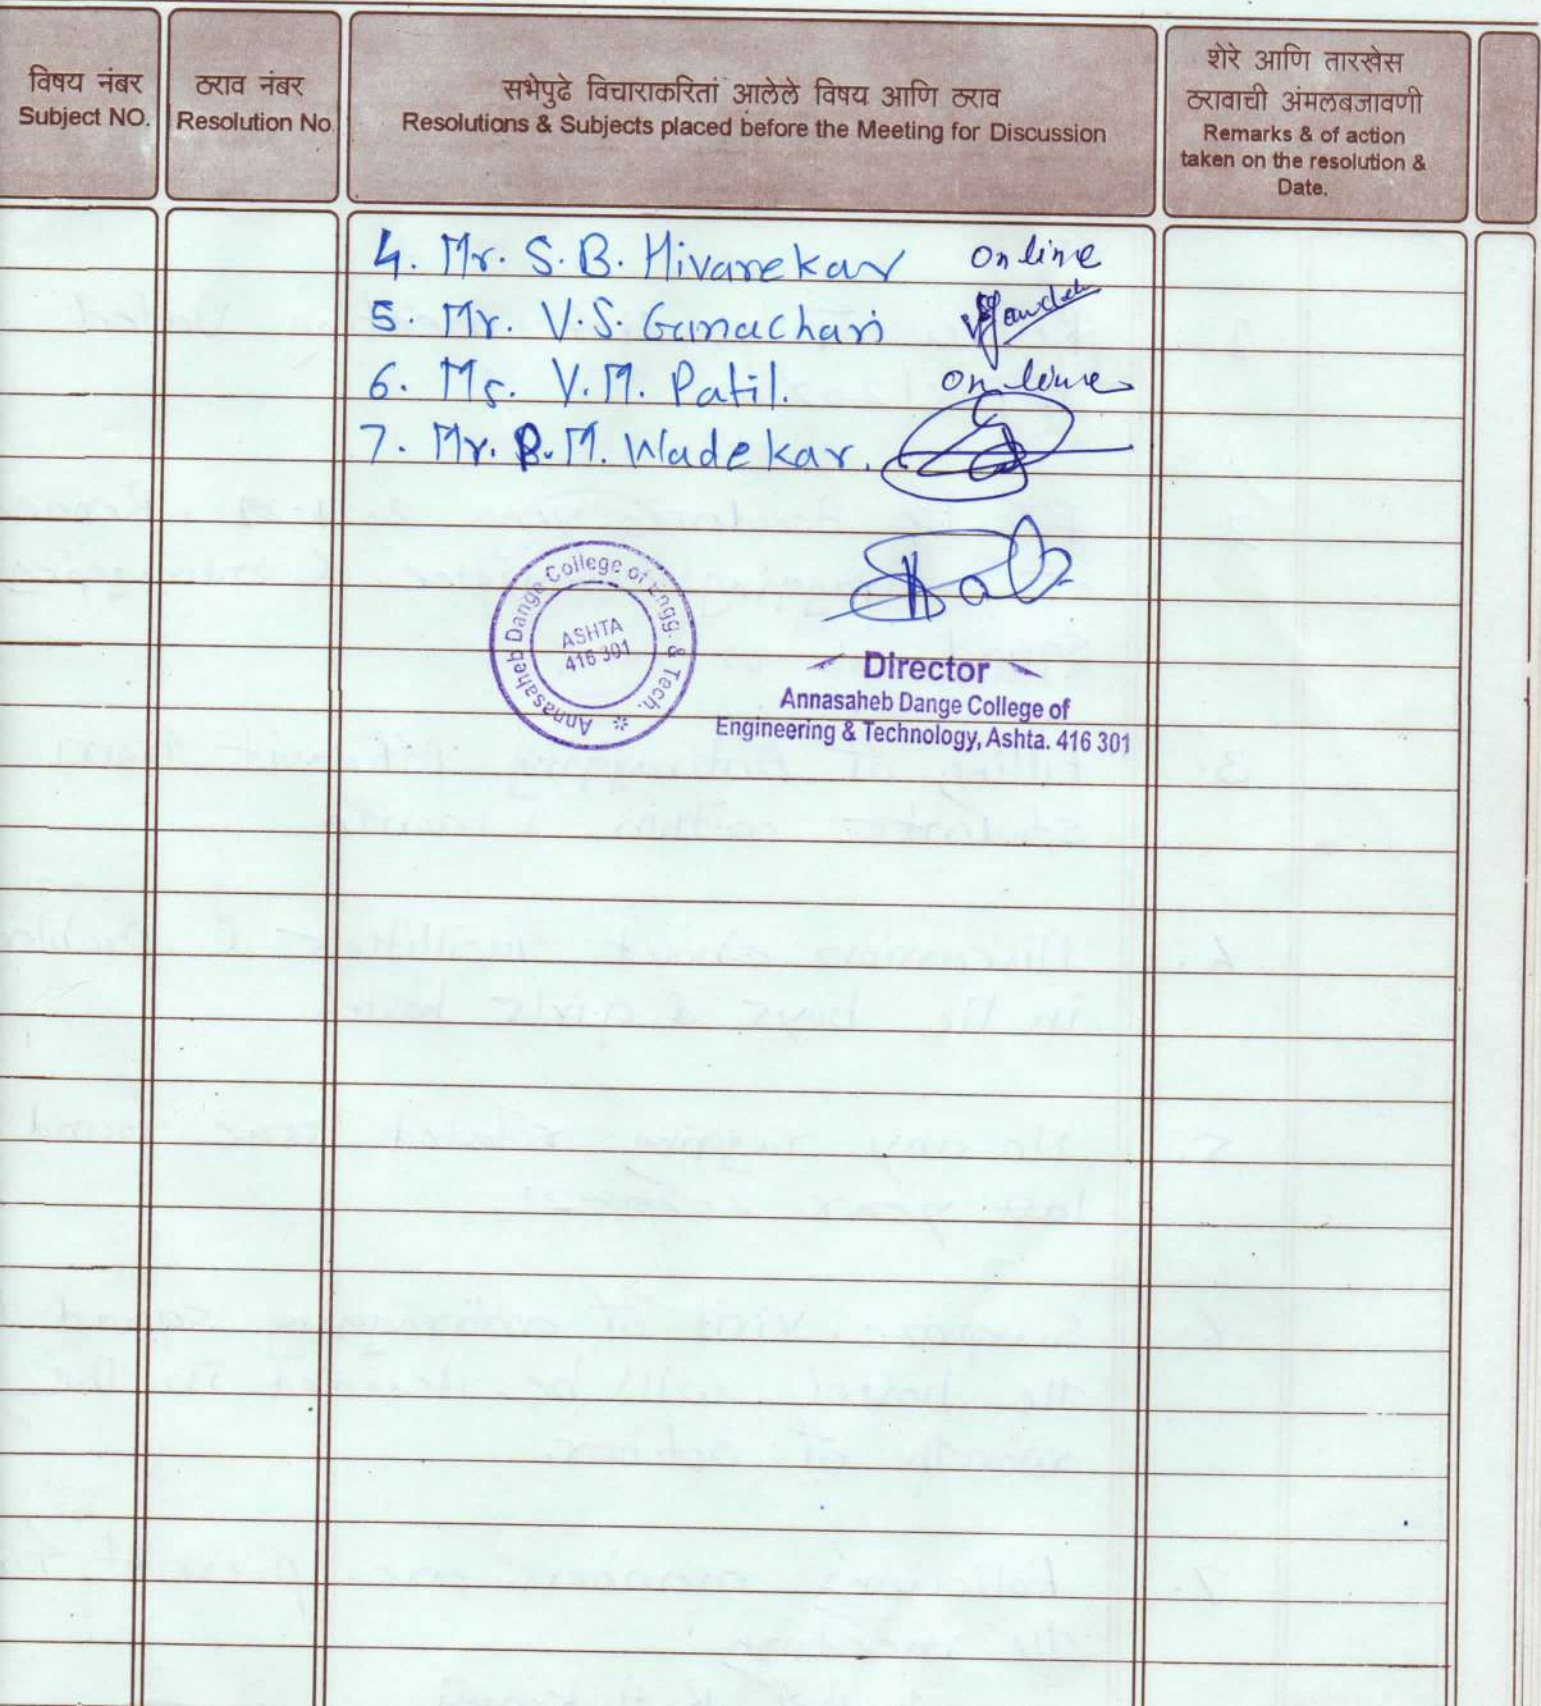 विषय नंबर
Subject NO.
ठराव नंबर
Resolution No
सभेपुढे विचाराकरितां आलेले विषय आणि ठराव
Resolutions & Subjects placed before the Meeting for Discussion
शेरे आणि तारखेस
ठरावाची अंमलबजावणी
Remarks & of action
taken on the resolution &
Date.
4. Mr. S.B. Hivarekar online
5. Mr. V.S. Ganachari
6. Ms. V.M. Patil. online
7. Mr. B.M. Wadekar.
Annasaheb Dange College of Engg. & Tech.
ASHTA
416 301
Director
Annasaheb Dange College of
Engineering & Technology, Ashta. 416 301